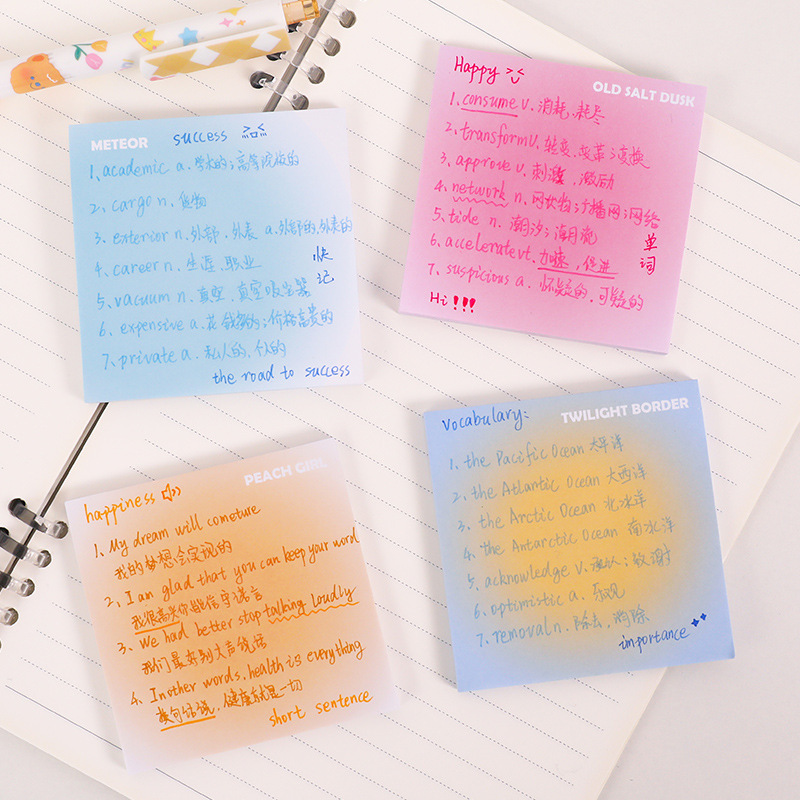 METEOR success
1、academic a. 学术的；高等院校的
2、cargo n、货物
3、exterior n.外部、外表 a.外部的,外表的
4、career n、生涯、职业
5、vacuum n、真空、真空吸尘器
6、expensive a.花钱多的；价格高贵的
7、private a、私人的、个人的
快记
the road to success
Happy
OLD SALT DUSK
1、consume v.消耗、耗尽
2、transform v、转变、变革；变换
3、approve v.刺激、激励
4、network n.网状物；广播网；网络
5、tide n.潮汐；潮流
6、accelerate vt.加速、促进
7、suspicious a.怀疑的、可疑的
单词
Hi !!!
PEACH GIRL
happiness
1、My dream will cometure
我的梦想会实现的
2、I am glad that you can keep your word
我很高兴你能信守诺言
3、We had better stop talking loudly
我们最好别大声说话
4、In other words, health is everything
换句话说，健康就是一切
short sentence
Vocabulary:
TWILIGHT BORDER
1、the Pacific Ocean 太平洋
2、the Atlantic Ocean 大西洋
3、the Arctic Ocean 北冰洋
4、the Antarctic Ocean 南冰洋
5、acknowledge v.承认；致谢
6、optimistic a.乐观
7、removal n.除去、消除
importance